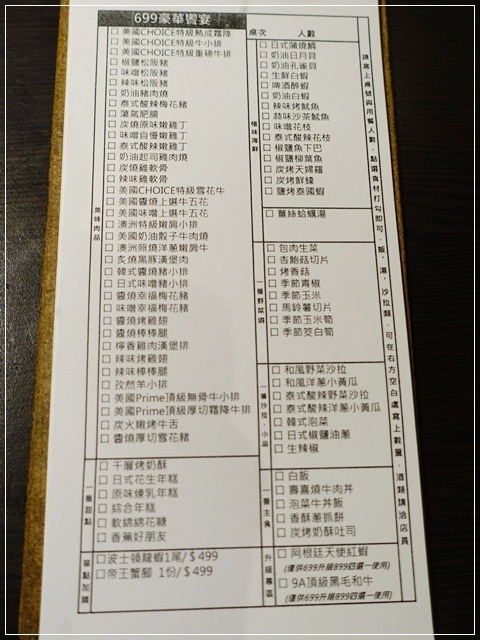 699豪華饗宴
美味肉品
美國CHOICE特級熟成霜降
美國CHOICE特級牛小排
美國CHOICE特級重磅牛排
椒鹽松阪豬
味噌松阪豬
辣味松阪豬
奶油豬肉燒
泰式酸辣梅花豬
薄氣肥腸
炭燒原味嫩雞丁
味噌自慢嫩雞丁
泰式酸辣嫩雞丁
奶油起司雞肉燒
炭燒雞軟骨
辣味雞軟骨
美國CHOICE特級雪花牛
美國醬燒上選牛五花
美國味噌上選牛五花
澳洲特級嫩肩小排
美國奶油骰子牛肉燒
澳洲照燒洋蔥嫩肩牛
炙燒黑豚漢堡肉
韓式醬燒豬小排
日式味噌豬小排
醬燒幸福梅花豬
味噌幸福梅花豬
醬燒烤雞翅
醬燒棒棒腿
檸香雞肉漢堡排
辣味烤雞翅
辣味棒棒腿
孜然羊小排
美國Prime頂級無骨牛小排
美國Prime頂級厚切霜降牛排
炭火嫩烤牛舌
醬燒厚切雪花豬
一番甜點
千層烤奶酥
日式花生年糕
原味煉乳年糕
綜合年糕
軟綿綿花糖
香蕉好朋友
單點加購
波士頓龍蝦1尾/$499
帝王蟹腳 1份/$499
桌次 人數
極味海鮮
日式蒲燒鯛
奶油日月貝
奶油孔雀貝
生鮮白蝦
啤酒醉蝦
奶油白蝦
辣味烤魷魚
蒜味沙茶魷魚
味噌花枝
椒鹽魚下巴
椒鹽柳葉魚
炭烤天婦羅
炭烤鮮蠔
鹽烤泰國蝦
薑絲蛤蠣湯
一番野菜燒
包肉生菜
杏鮑菇切片
烤香菇
季節青椒
季節玉米
馬鈴薯切片
季節玉米筍
季節茭白筍
一番沙拉.小品
和風野菜沙拉
和風洋蔥小黃瓜
泰式酸辣野菜沙拉
泰式酸辣洋蔥小黃瓜
韓式泡菜
日式椒鹽油蔥
生辣椒
一番主食
白飯
壽喜燒牛肉丼
泡菜牛丼飯
香酥蔥抓餅
炭烤奶酥吐司
升級專區
阿根廷天使紅蝦
(僅供699升級899四選一使用)
9A頂級黑毛和牛
(僅供699升級899四選一使用)
請寫上桌號與用餐人數,點選食材打勾即可,飯.湯.沙拉類.可在右方空白處寫上數量.酒類請洽店員